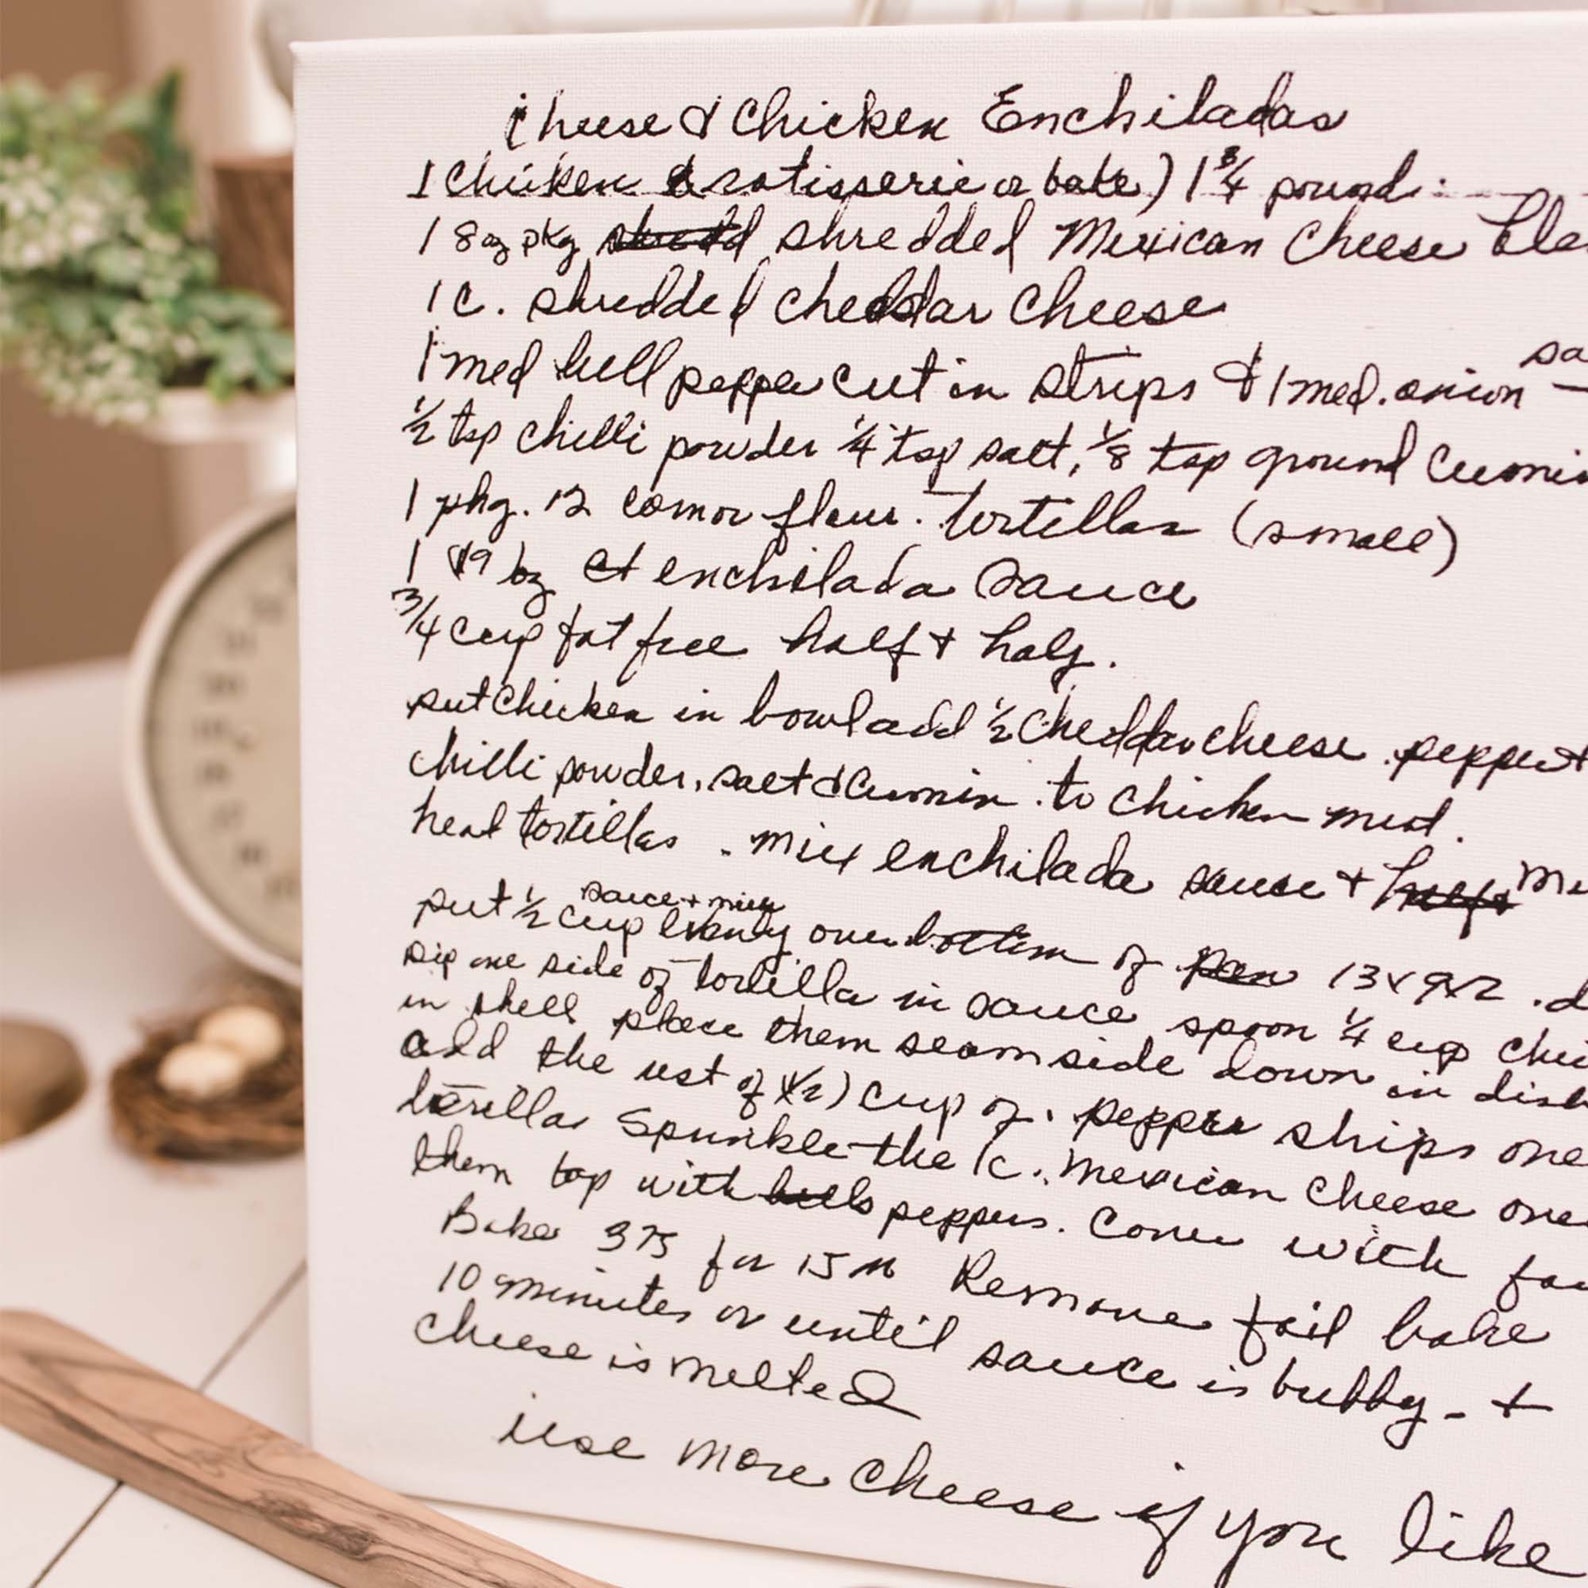 Cheese & Chicken Enchiladas
1 Chicken (rotisserie or bake) 1 3/4 pound
1 8 oz pkg shredded Mexican Cheese Ble
1 c. shredded cheddar cheese
1 med bell pepper cut in strips & 1 med. onion sa
1/2 tsp chilli powder 1/4 tsp salt, 1/8 tsp ground Cumin
1 pkg. 12 corn or flour. tortillas (small)
1 19 oz enchilada sauce
3/4 cup fat free half + half.
put Chicken in bowl add 1/2 Cheddar cheese. pepper +
chilli powder, salt & Cumin. to chicken meat.
heat tortillas. mix enchilada sauce + half
put 1/2 cup sauce + mix evenly over bottom of pan 13x9x2. d
Dip one side of tortilla in sauce spoon 1/4 cup chi
in shell place them seam side down in dish
add the rest of (1/2) cup of. pepper strips over
tortillas Sprinkle the 1 c. Mexican cheese over
them top with peppers. Cover with foi
Bake 375 for 15 m Remove foil bake
10 minutes or until sauce is bubbly - +
cheese is melted
use more cheese if you like